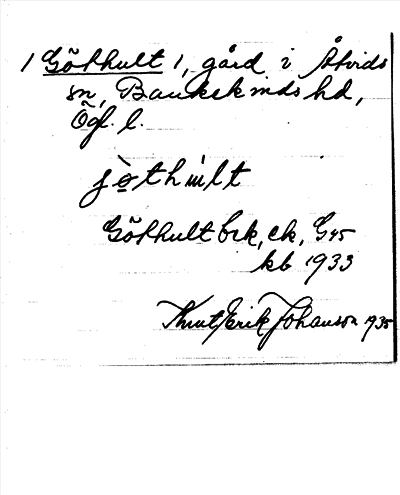 / Göthult /, gård i Åtvids
sn, Bankekinds hd,
Ögl. l.
Göthult bek, ek, G45
kb 1933
Knut Erik Johanson 1935